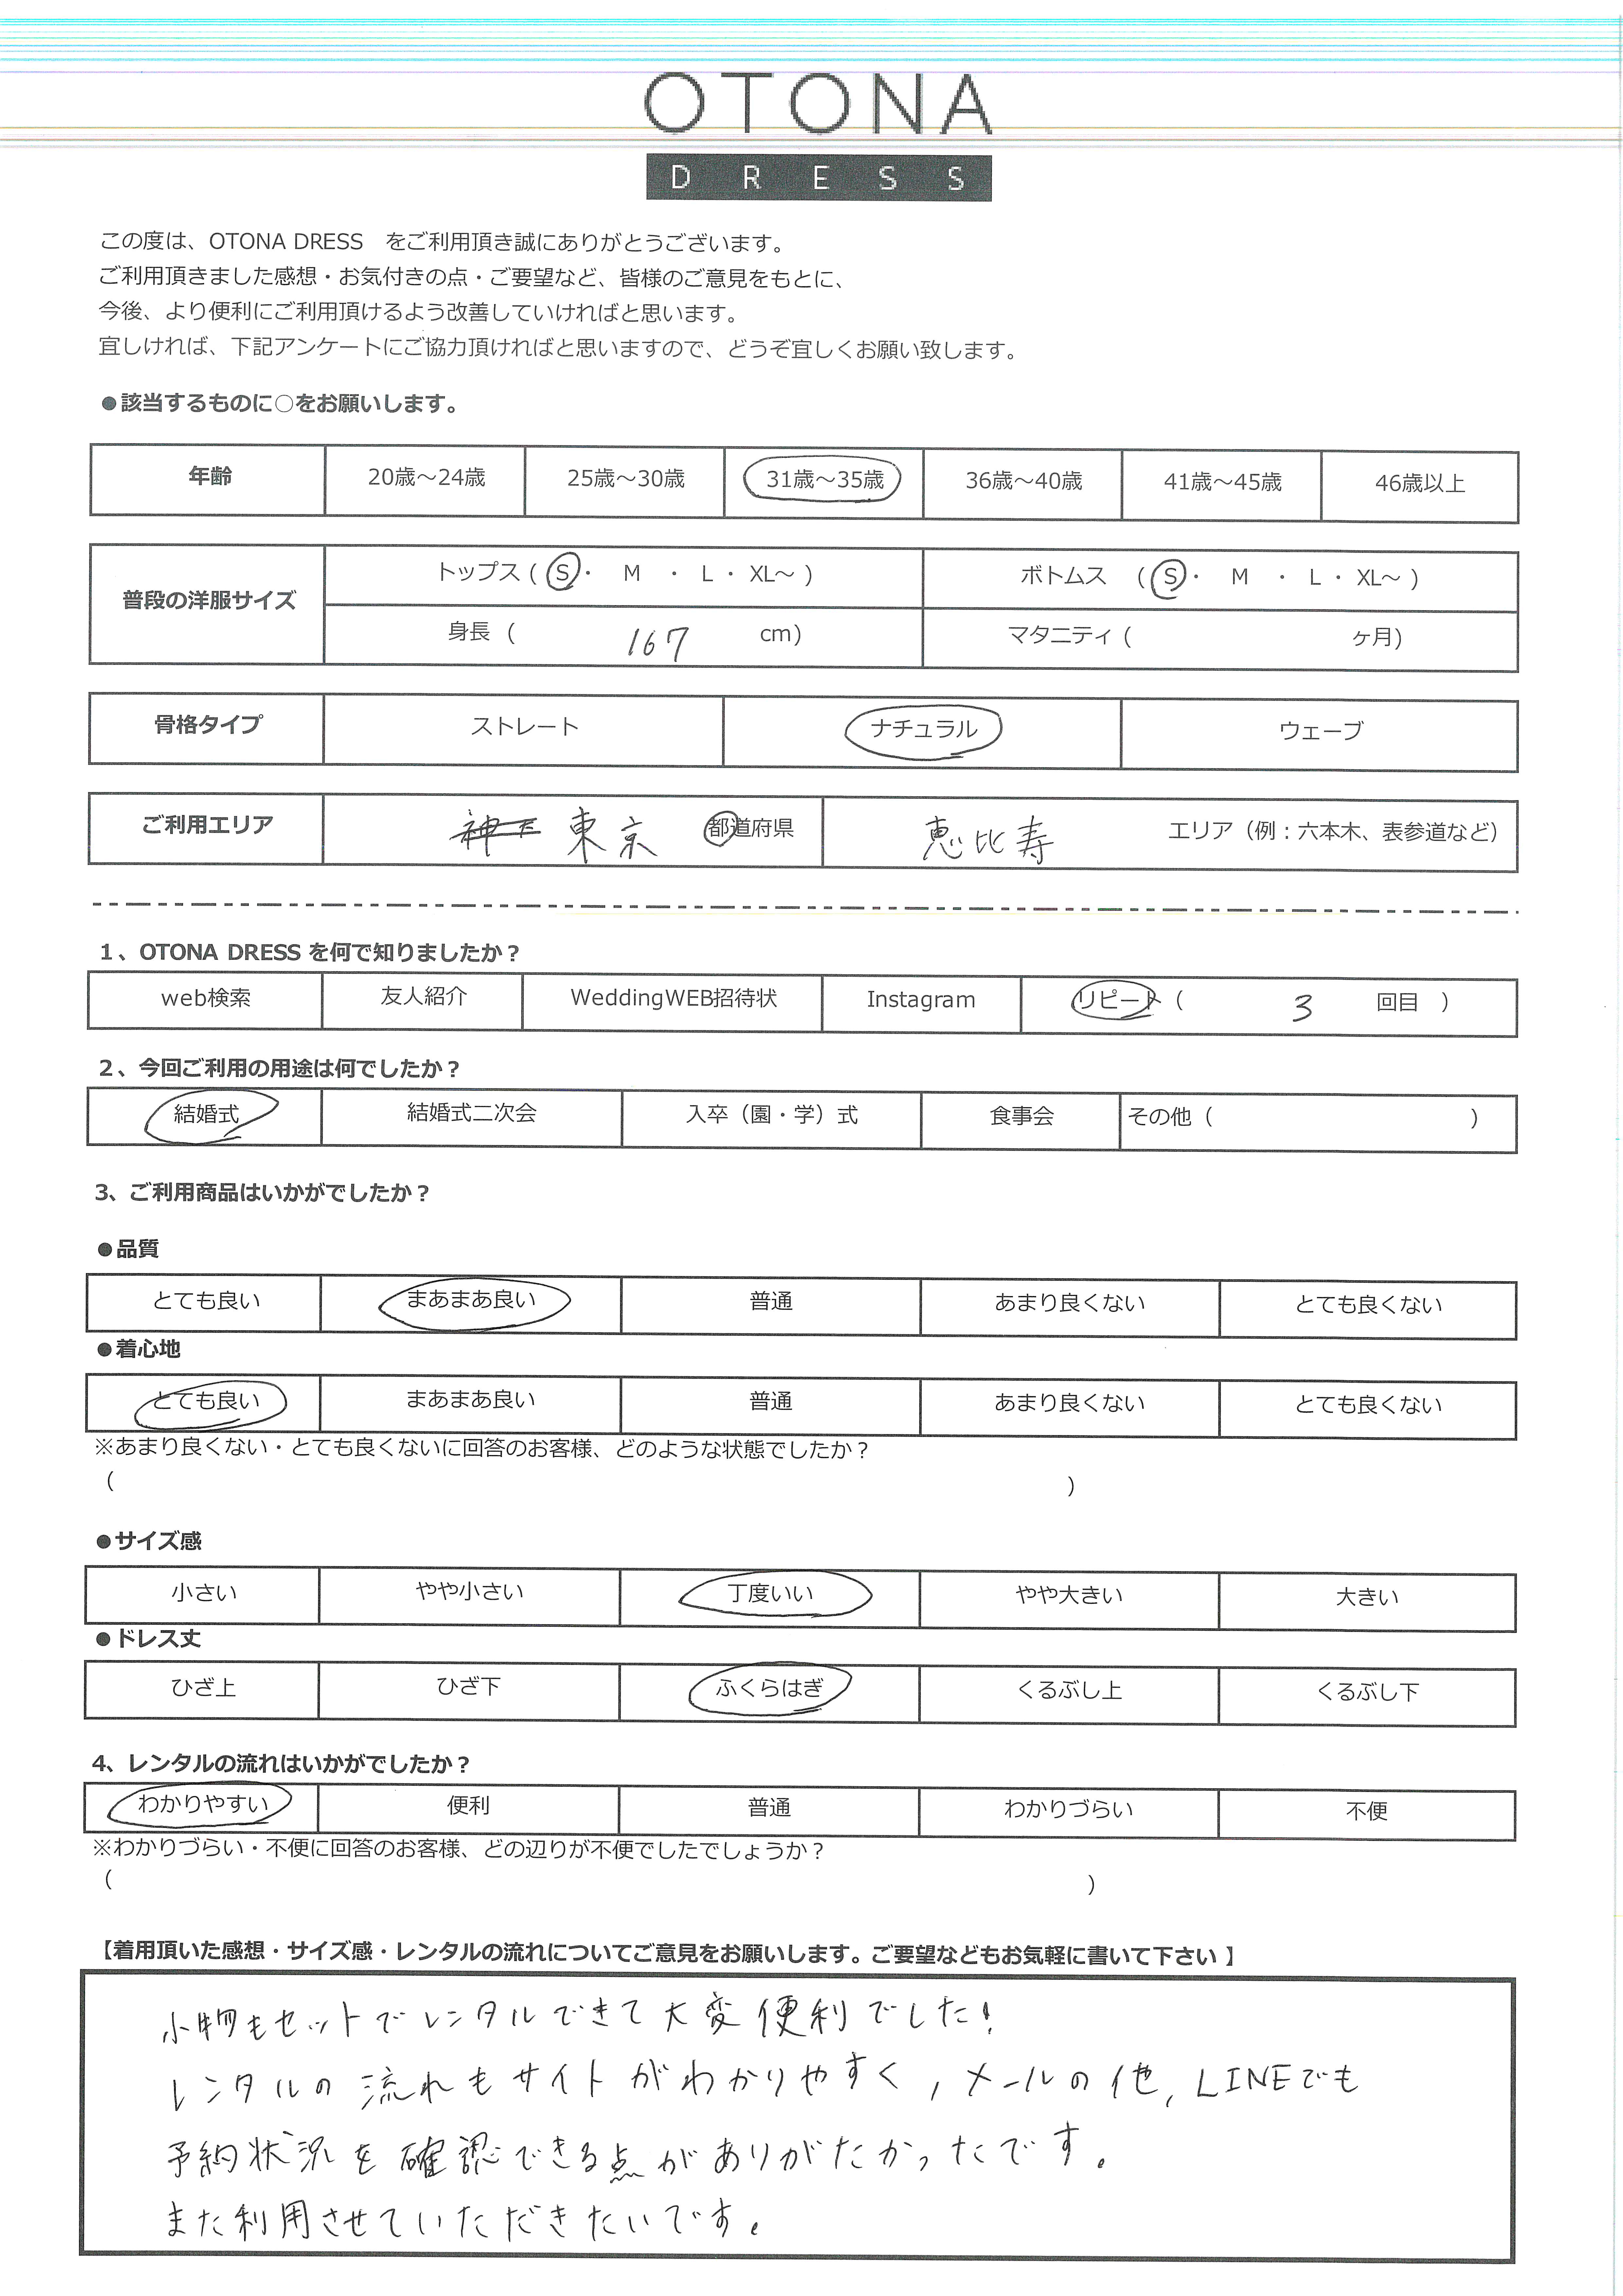 OTONA
DRESS
この度は、OTONA DRESS　をご利用頂き誠にありがとうございます。
ご利用頂きました感想・お気付きの点・ご要望など、皆様のご意見をもとに、
今後、より便利にご利用頂けるよう改善していければと思います。
宜しければ、下記アンケートにご協力頂ければと思いますので、どうぞ宜しくお願い致します。
●該当するものに○をお願いします。
年齢 20歳～24歳 25歳～30歳 31歳～35歳 36歳～40歳 41歳～45歳 46歳以上
普段の洋服サイズ トップス ( S ・ M ・ L ・ XL～ ) ボトムス ( S ・ M ・ L ・ XL～ )
身長 ( 167 cm) マタニティ ( ヶ月)
骨格タイプ ストレート ナチュラル ウェーブ
ご利用エリア 東京 都道府県 恵比寿 エリア（例：六本木、表参道など）
1、OTONA DRESS を何で知りましたか？
web検索 友人紹介 WeddingWEB招待状 Instagram リピート ( 3 回目 )
2、今回ご利用の用途は何でしたか？
結婚式 結婚式二次会 入卒（園・学）式 食事会 その他 ( )
3、ご利用商品はいかがでしたか？
●品質
とても良い まあまあ良い 普通 あまり良くない とても良くない
●着心地
とても良い まあまあ良い 普通 あまり良くない とても良くない
※あまり良くない・とても良くないに回答のお客様、どのような状態でしたか？
( )
●サイズ感
小さい やや小さい 丁度いい やや大きい 大きい
●ドレス丈
ひざ上 ひざ下 ふくらはぎ くるぶし上 くるぶし下
4、レンタルの流れはいかがでしたか？
わかりやすい 便利 普通 わかりづらい 不便
※わかりづらい・不便に回答のお客様、どの辺りが不便でしたでしょうか？
( )
【着用頂いた感想・サイズ感・レンタルの流れについてご意見をお願いします。ご要望などもお気軽に書いて下さい 】
小物もセットでレンタルできて大変便利でした!
レンタルの流れもサイトがわかりやすく, メールの他, LINEでも
予約状況を確認できる点がありがたかったです。
また利用させていただきたいです。